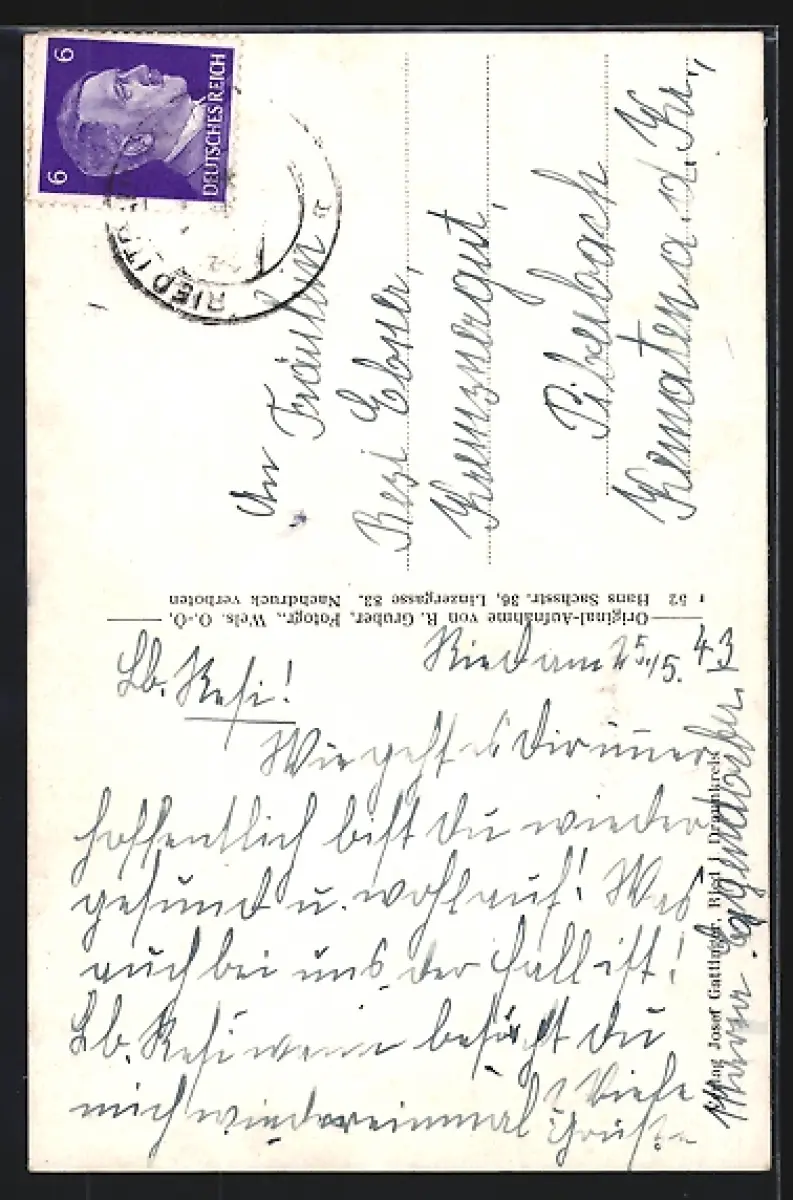 6
6
DEUTSCHES REICH
RIED
An Fräulein
Resi Ebner,
Piberbach
Kematen a. d. Kr.,
Original-Aufnahme von R. Gruber, Fotogr., Wels, O.-Ö.,
Hans Sachsstr. 36, Linzergasse 83. Nachdruck verboten
52
Josef Gattinger, Ried i. Traunkreis
Ried am 25./5. 43
Lb. Resi!
Wie geht es Dir immer
hoffentlich bist du wieder
gesund u. wohlauf! Was
auch bei uns der Fall ist!
Lb. Resi wann besuchst du
mich wiedereinmal? Viele
Grüße